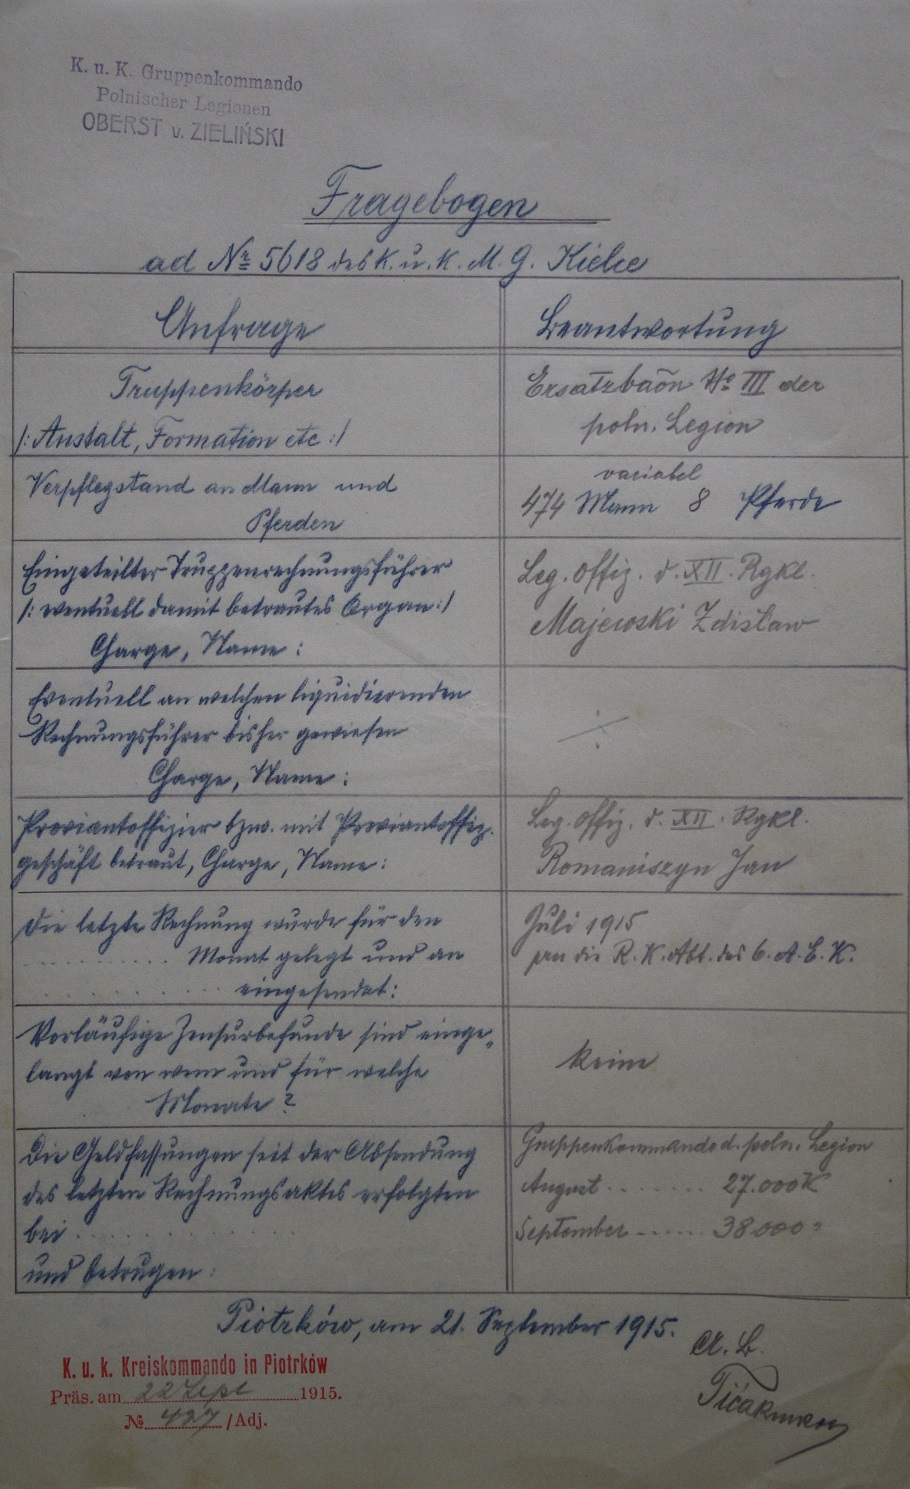 K. u. K. Gruppenkommando
Polnischer Legionen
OBERST v. ZIELIŃSKI
Fragebogen
ad Nr 5618 des K. u. K. M. G. Kielce
Anfrage
Beantwortung
Truppenkörper
/: Anstalt, Formation etc :/
Ersatzbaōn No III der
poln. Legion
Verpflegstand an Mann und
Pferden
variabel
474 Mann 8 Pferde
Eingeteilter Truppenrechnungsführer
/: eventuell damit betrautes Organ :/
Charge, Name :
Leg. Offiz. d. XII. Rgkl.
Majewski Zdisław
Eventuell an welchen liquidierenden
Rechnungsführer bisher gewiesen
Charge, Name :
Proviantoffizier bzw. mit Proviantoffiz.
geschäft betraut, Charge, Name :
Leg. Offiz. d. XII. Rgkl.
Romaniszyn Jan
Die letzte Rechnung wurde für den
........... Monat gelegt und an
.............. eingesendet :
Juli 1915
an die R. K. Abt. des 6. A. E. K.
Vorläufige Zensurbefunde sind einge„
langt von wem und für welche
Monate ?
keine
Die Geldfassungen seit der Absendung
des letzten Rechnungsaktes erfolgten
bei ............
und betrugen :
Gruppenkommando d. poln. Legion
August ........ 27.000 K
September ...... 38000 "
Piotrków, am 21. September 1915.
K. u. k. Kreiskommando in Piotrków
Präs. am 22 Sept 1915.
№ 427 /Adj.